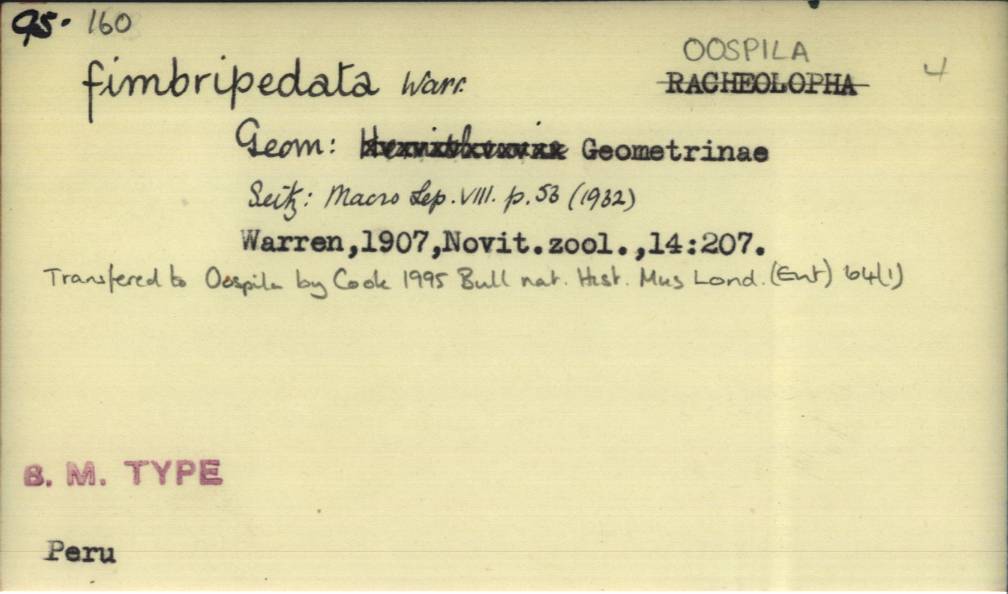 95. 160
OOSPILA
fimbripedata Warr. RACHEOLOPHA 4
Geom: Geometrinae
Seitz: Macro Lep. VIII. p. 53 (1932)
Warren,1907,Novit.zool.,14:207.
Transfered to Oospila by Cook 1995 Bull nat. Hist. Mus Lond. (Ent) 64(1)
B. M. TYPE
Peru